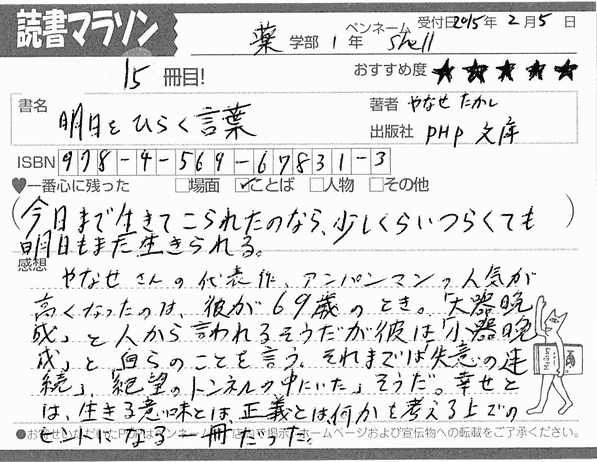 読書マラソン
薬 学部 1 年 ペンネーム shell 受付日2015年 2月 5日
15 冊目! おすすめ度 ★★★★★
書名 明日をひらく言葉
著者 やなせ たかし
出版社 PHP 文庫
ISBN 978-4-569-67831-3
♥一番心に残った □場面 ☑ことば □人物 □その他
(今日まで生きてこられたのなら、少しくらいつらくても
明日もまた生きられる。)
感想
やなせさんの代表作、アンパンマンの人気が
高くなったのは、彼が69歳のとき。「大器晩
成」と人から言われるそうだが彼は「小器晩
成」と自らのことを言う。それまでは失意の連
続」、「絶望のトンネルの中にいた」そうだ。幸せと
は、生きる意味とは、正義とは何かを考える上での
ヒントになる一冊だった。